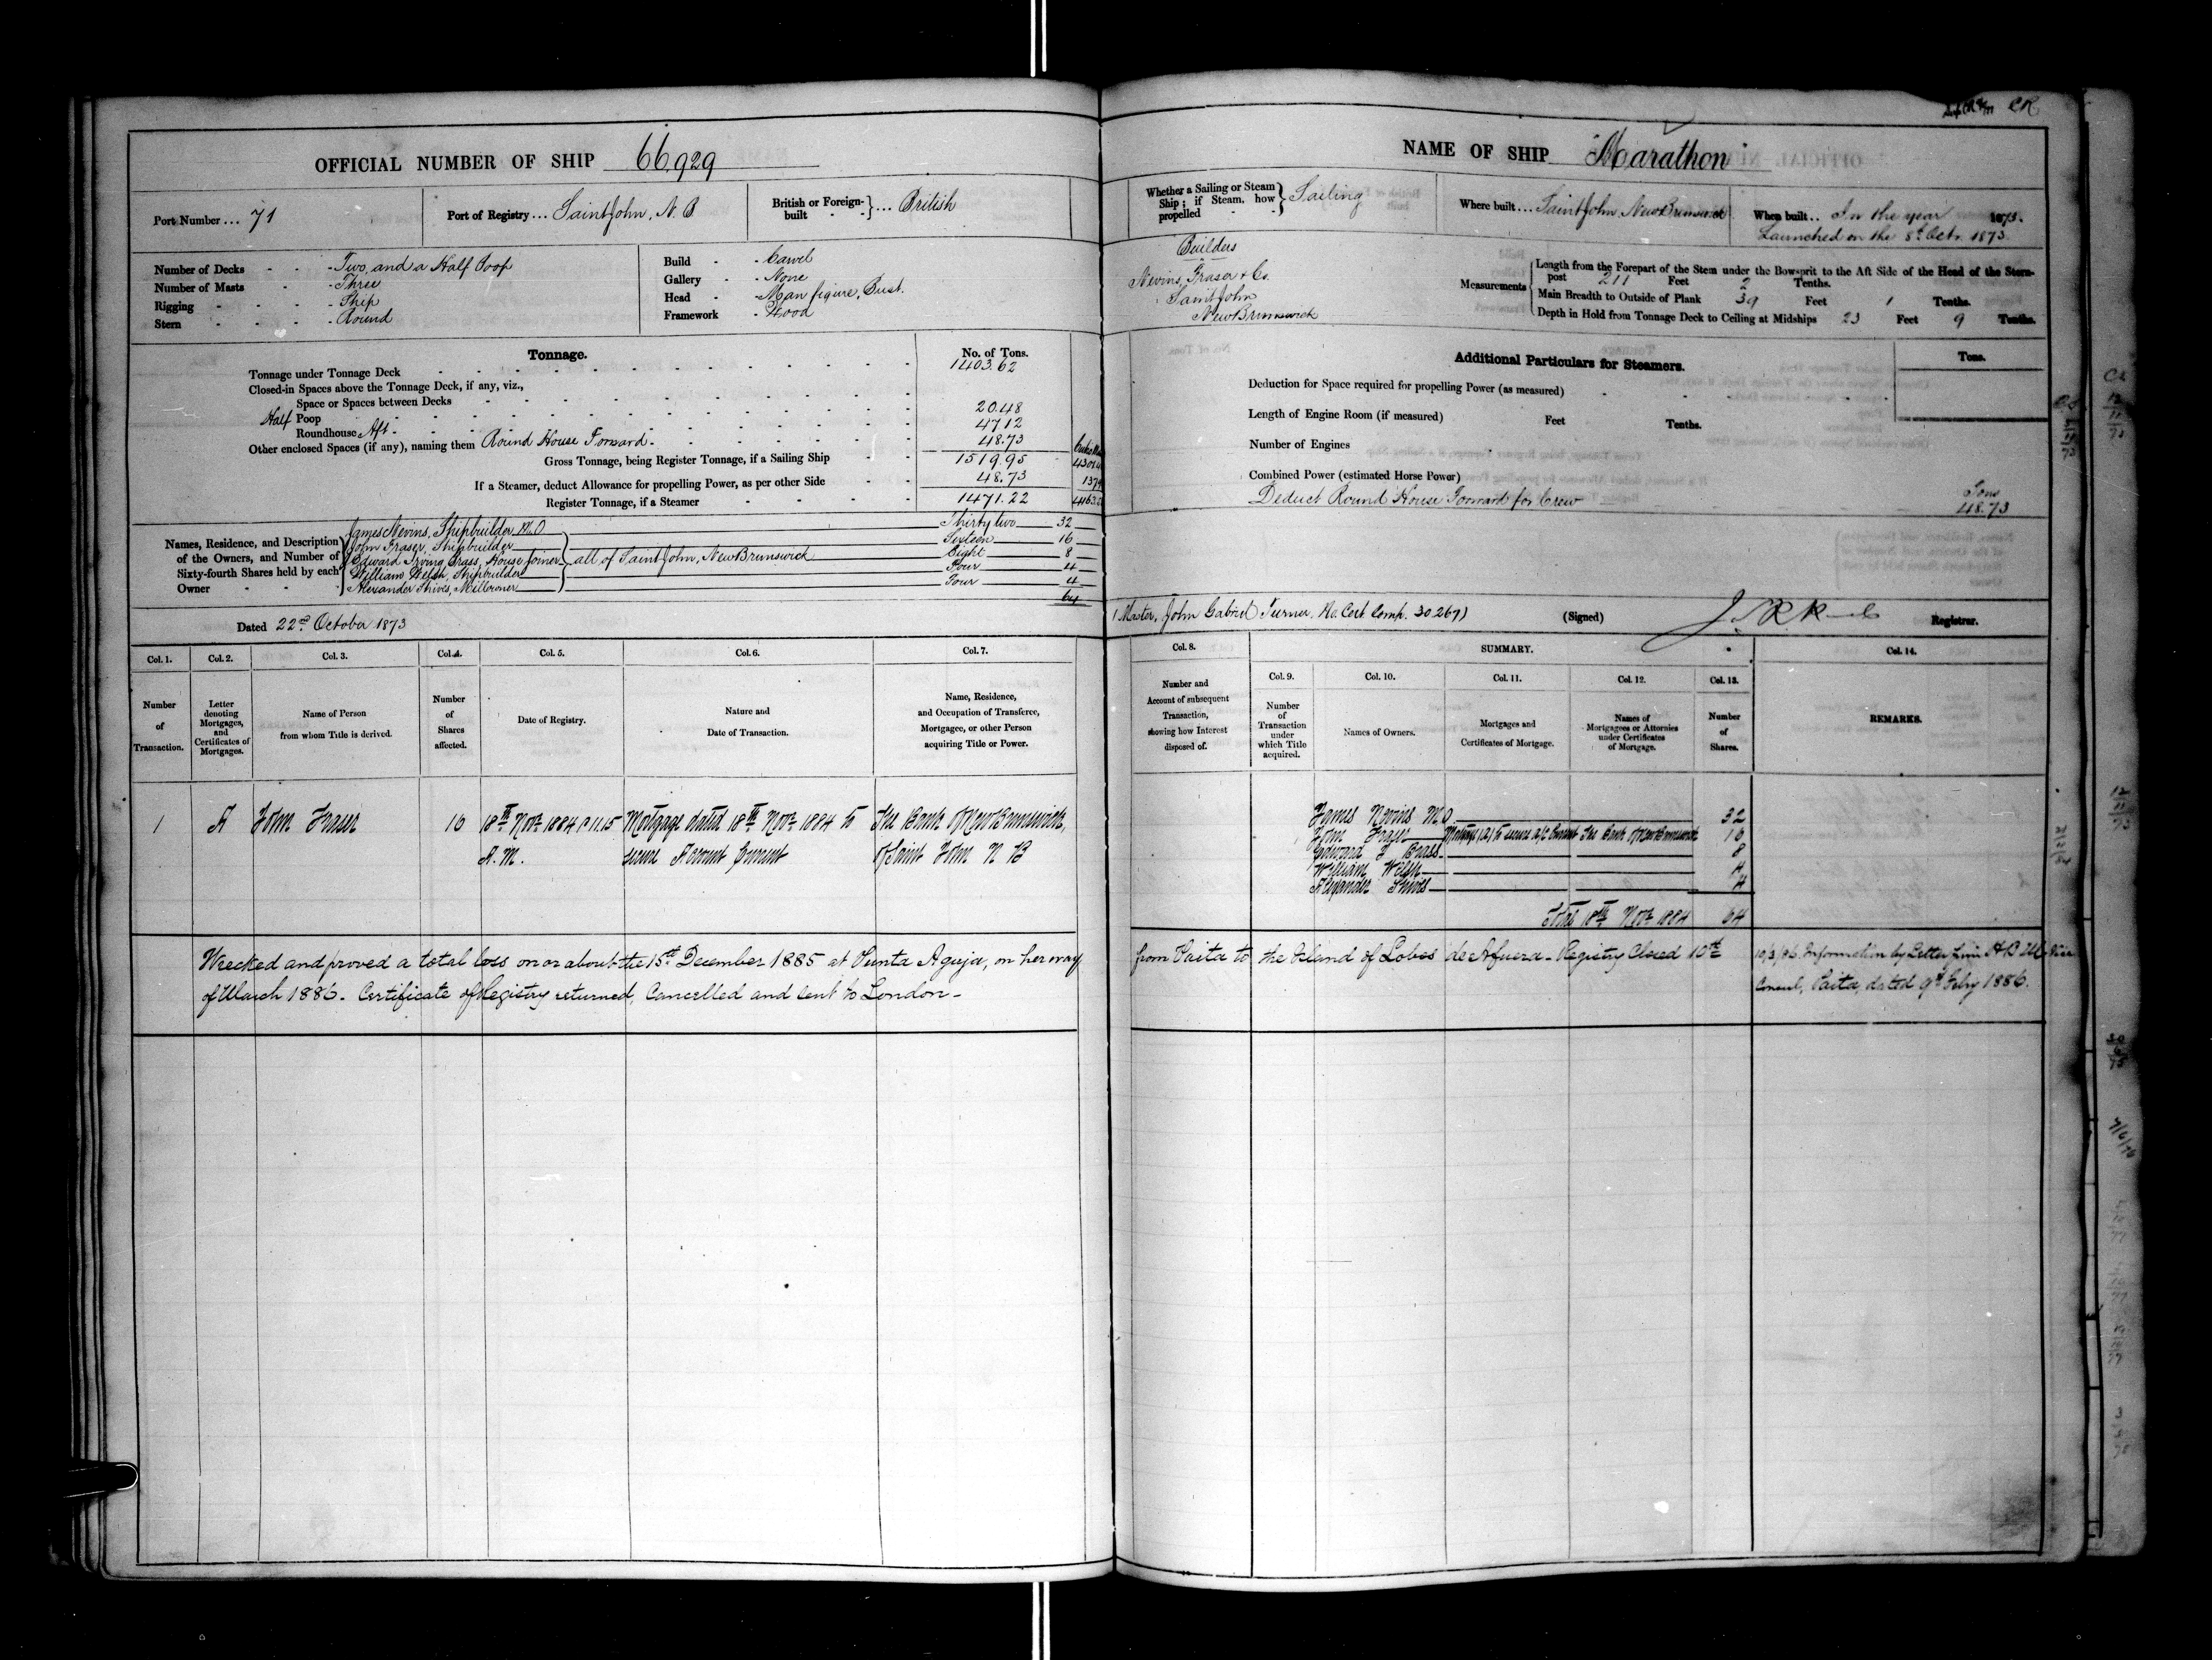 OFFICIAL NUMBER OF SHIP 66,929
Port Number ... 71
Port of Registry ... Saint John, N. B
British or Foreign-built ... British
Number of Decks - Two, and a Half Poop
Number of Masts - Three
Rigging - Ship
Stern - Round
Build - Carvel
Gallery - None
Head - Man figure, Bust.
Framework - Wood
Tonnage.
No. of Tons.
Tonnage under Tonnage Deck 1403.62
Closed-in Spaces above the Tonnage Deck, if any, viz.,
Space or Spaces between Decks
Half Poop 20.48
Roundhouse Aft - 47.12
Other enclosed Spaces (if any), naming them Round House Forward - 48.73
Gross Tonnage, being Register Tonnage, if a Sailing Ship 1519.95
If a Steamer, deduct Allowance for propelling Power, as per other Side 48.73
Register Tonnage, if a Steamer 1471.22
Names, Residence, and Description of the Owners, and Number of Sixty-fourth Shares held by each Owner
James Nevins, Shipbuilder M.O Thirty two 32
John Fraser, Shipbuilder Sixteen 16
Edward Irving Brass, House Joiner Eight 8
all of Saint John, New Brunswick
William Welsh, Shipbuilder Four 4
Alexander Shives, Millowner Four 4
64
Dated 22nd October 1873
Col. 1. Col. 2. Col. 3. Col. 4. Col. 5. Col. 6. Col. 7.
Number of Transaction.
Letter denoting Mortgages, and Certificates of Mortgages.
Name of Person from whom Title is derived.
Number of Shares affected.
Date of Registry.
Nature and Date of Transaction.
Name, Residence, and Occupation of Transferee, Mortgagee, or other Person acquiring Title or Power.
1 A John Fraser 16 18th Novr 1884 11.15 Mortgage dated 18th Novr 1884 to The Bank of New Brunswick,
A.M. secure Account Current of Saint John N B
Wrecked and proved a total loss on or about the 15th December 1885 at Punta Aguja, on her way
of March 1886. Certificate of Registry returned, Cancelled and sent to London -
NAME OF SHIP "Marathon"
Whether a Sailing or Steam Ship; if Steam, how propelled Sailing
Where built ... Saint John, New Brunswick
When built ... In the year 1873.
Launched on the 8th Octr. 1873
Builders
Nevins, Fraser & Co.
Saint John
New Brunswick
Measurements
Length from the Forepart of the Stem under the Bowsprit to the Aft Side of the Head of the Stern-
post 211 Feet 2 Tenths.
Main Breadth to Outside of Plank 39 Feet 1 Tenths.
Depth in Hold from Tonnage Deck to Ceiling at Midships 23 Feet 9 Tenths.
Additional Particulars for Steamers.
Tons.
Deduction for Space required for propelling Power (as measured)
Length of Engine Room (if measured) Feet Tenths.
Number of Engines
Combined Power (estimated Horse Power)
Deduct Round House Forward for Crew
Tons
48.73
(Master, John Gabriel Turner, No. Cert. Comp. 30,267)
(Signed)
Registrar.
Col. 8. SUMMARY. Col. 14.
Col. 9. Col. 10. Col. 11. Col. 12. Col. 13.
Number and Account of subsequent Transaction, showing how Interest disposed of.
Number of Transaction under which Title acquired.
Names of Owners.
Mortgages and Certificates of Mortgage.
Names of Mortgagees or Attornies under Certificates of Mortgage.
Number of Shares.
REMARKS.
James Nevins M.O 32
John Fraser Mortgage (A) to secure a/c Current The Bank of New Brunswick 16
Edward I Brass 8
William Welsh 4
Alexander Shives 4
Total 18th Novr 1884 64
from Paita to the Island of Lobos de Afuera - Registry Closed 10th
10/3/86. Information by Letter from H B M Vice
Consul, Paita, dated 9th Feby 1886.